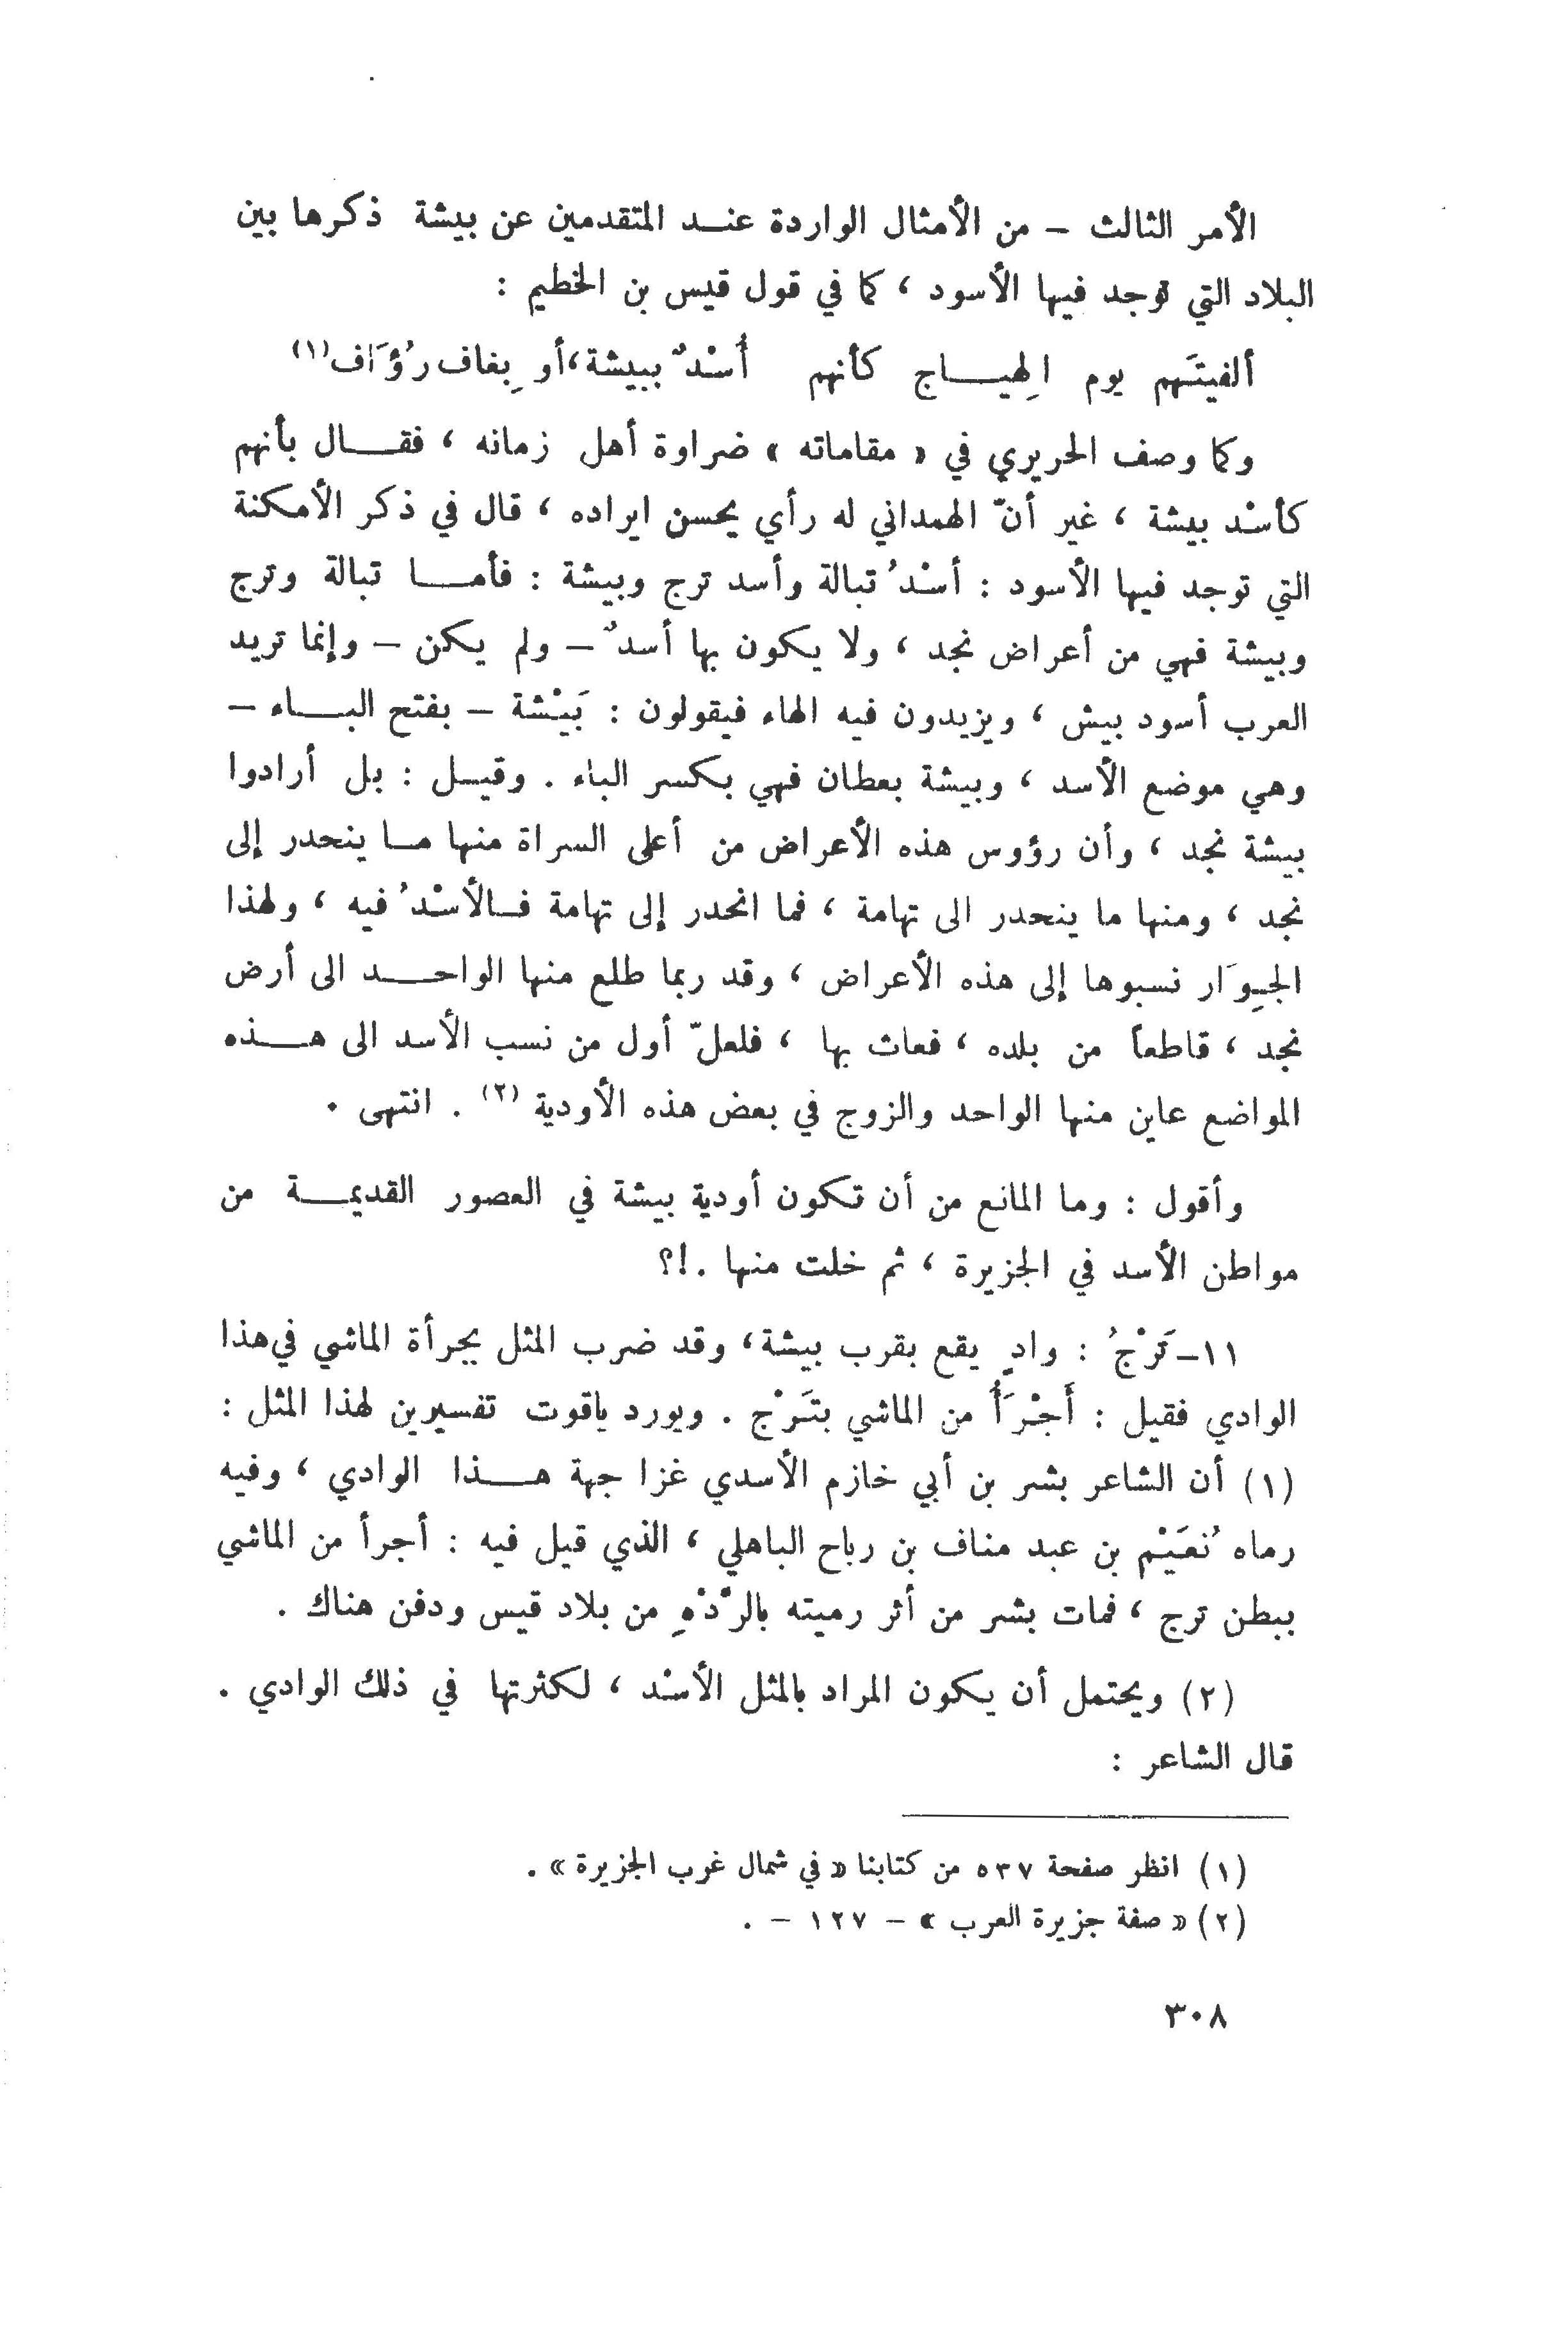 الأمر الثالث – من الأمثال الواردة عند المتقدمين عن بيشة ذكرها بين
البلاد التي توجد فيها الأسود ، كما في قول قيس بن الخطيم :
ألفيتَهم يوم الهِياج كأنهم أُسْدٌ ببيشة ، أو بِغاف رُؤَاف (١)
وكما وصف الحريري في « مقاماته » ضراوة أهل زمانه ، فقال بأنهم
كأسْد بيشة ، غير أنّ الهمداني له رأي يحسن ايراده ، قال في ذكر الأمكنة
التي توجد فيها الأسود : أسْدُ تبالة وأسد ترج وبيشة : فأما تبالة وترج
وبيشة فهي من أعراض نجد ، ولا يكون بها أسدٌ – ولم يكن – وإنما تريد
العرب أسود بيش ، ويزيدون فيه الهاء فيقولون : بَيْشة – بفتح الباء –
وهي موضع الأسد ، وبيشة بعطان فهي بكسر الباء . وقيل : بل أرادوا
بيشة نجد ، وأن رؤوس هذه الأعراض من أعلى السراة منها ما ينحدر إلى
نجد ، ومنها ما ينحدر الى تهامة ، فما انحدر إلى تهامة فالأسْدُ فيه ، ولهذا
الجِوَار نسبوها إلى هذه الأعراض ، وقد ربما طلع منها الواحد الى أرض
نجد ، قاطعاً من بلده ، فعاث بها ، فلعلّ أول من نسب الأسد الى هذه
المواضع عاين منها الواحد والزوج في بعض هذه الأودية (٢) . انتهى .
وأقول : وما المانع من أن تكون أودية بيشة في العصور القديمة من
مواطن الأسد في الجزيرة ، ثم خلت منها .!؟
١١– تَرْجُ : وادٍ يقع بقرب بيشة ، وقد ضرب المثل بجرأة الماشي في هذا
الوادي فقيل : أَجْرَأُ من الماشي بتَرْج . ويورد ياقوت تفسيرين لهذا المثل :
(١) أن الشاعر بشر بن أبي خازم الأسدي غزا جهة هذا الوادي ، وفيه
رماه نُعَيْم بن عبد مناف بن رباح الباهلي ، الذي قيل فيه : أجرأ من الماشي
ببطن ترج ، فمات بشر من أثر رميته بالرَّدْهِ من بلاد قيس ودفن هناك .
(٢) ويحتمل أن يكون المراد بالمثل الأسْد ، لكثرتها في ذلك الوادي .
قال الشاعر :
(١) انظر صفحة ٥٣٧ من كتابنا « في شمال غرب الجزيرة » .
(٢) « صفة جزيرة العرب » – ١٢٧ – .
٣٠٨